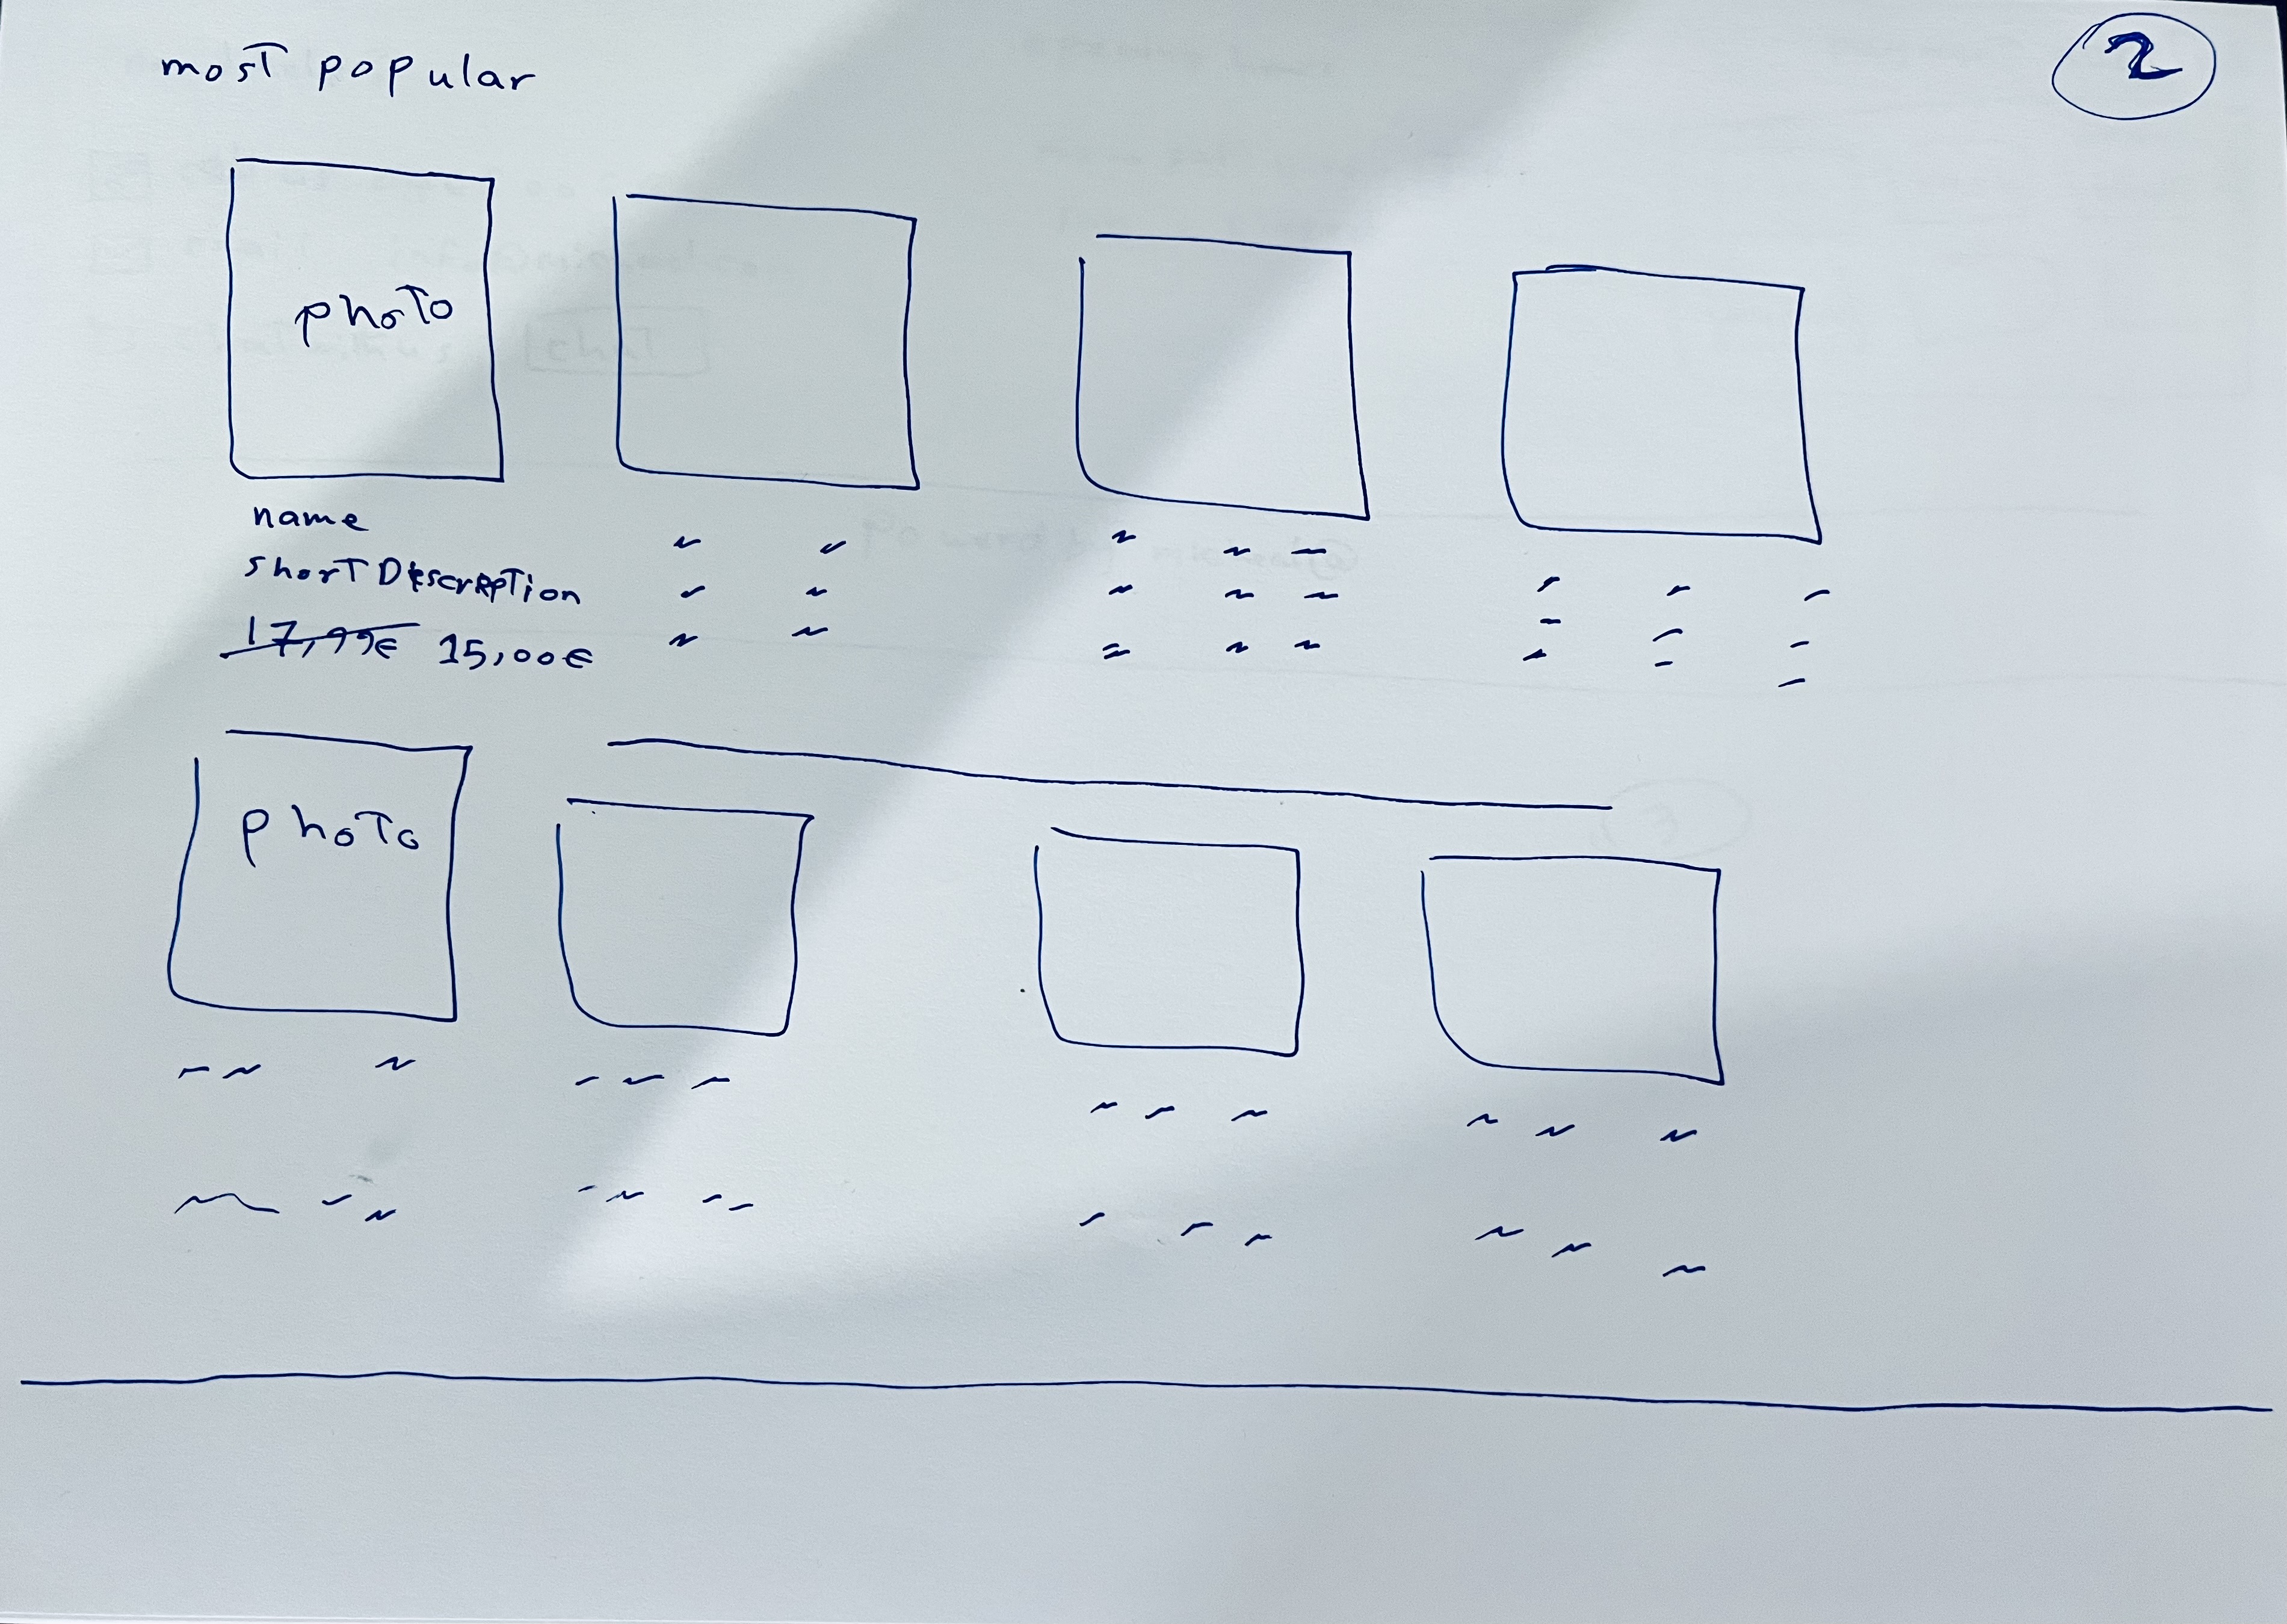 most popular
2
photo
name
short Description
17,99€ 15,00€
photo